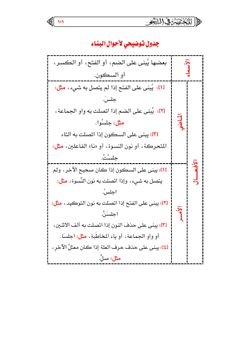 ١٠٨
جدول توضيحي لأحوال البناء
الأسماء
بعضها يُبنى على الضم، أو الفتح، أو الكسر،
أو السكون.
الأفعال
الماضي
(١): يُبنى على الفتح إذا لم يتصل به شيء، مثل:
جلسَ.
(٢): يُبنى على الضم إذا اتصلت به واو الجماعة،
مثل: جلسُوا.
(٣): يبنى على السكون إذا اتصلت به التاء
المتحركة، أو نون النسوة، أو «نا» الفاعلين، مثل:
جلسْتُ.
الأمر
(١): يبنى على السكون إذا كان صحيح الآخر، ولم
يتصل به شيء، وإذا اتصلت به نون النسوة، مثل:
اجلسْ.
(٢): يبنى على الفتح إذا اتصلت به نون التوكيد، مثل:
اجلسَنَّ.
(٣): يبنى على حذف النون إذا اتصلت به ألف الاثنين،
أو واو الجماعة، أو ياء المخاطبة، مثل: اجلسا.
(٤): يبنى على حذف حرف العلة إذا كان معتل الآخر،
مثل: صلِّ.